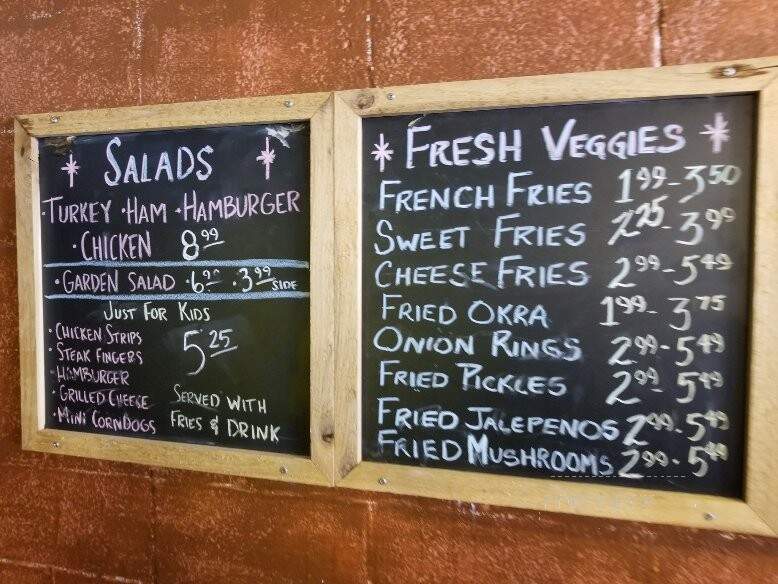 * SALADS *
·TURKEY ·HAM ·HAMBURGER
·CHICKEN 8.99
·GARDEN SALAD ·6.99 ·3.99 SIDE
JUST FOR KIDS
·CHICKEN STRIPS
·STEAK FINGERS
·HAMBURGER
·GRILLED CHEESE
·MINI CORNDOGS
5.25
SERVED WITH
FRIES & DRINK
* FRESH VEGGIES *
FRENCH FRIES 1.99-3.50
SWEET FRIES 2.25-3.99
CHEESE FRIES 2.99-5.49
FRIED OKRA 1.99-3.75
ONION RINGS 2.99-5.49
FRIED PICKLES 2.99-5.49
FRIED JALEPENOS 2.99-5.49
FRIED MUSHROOMS 2.99-5.49